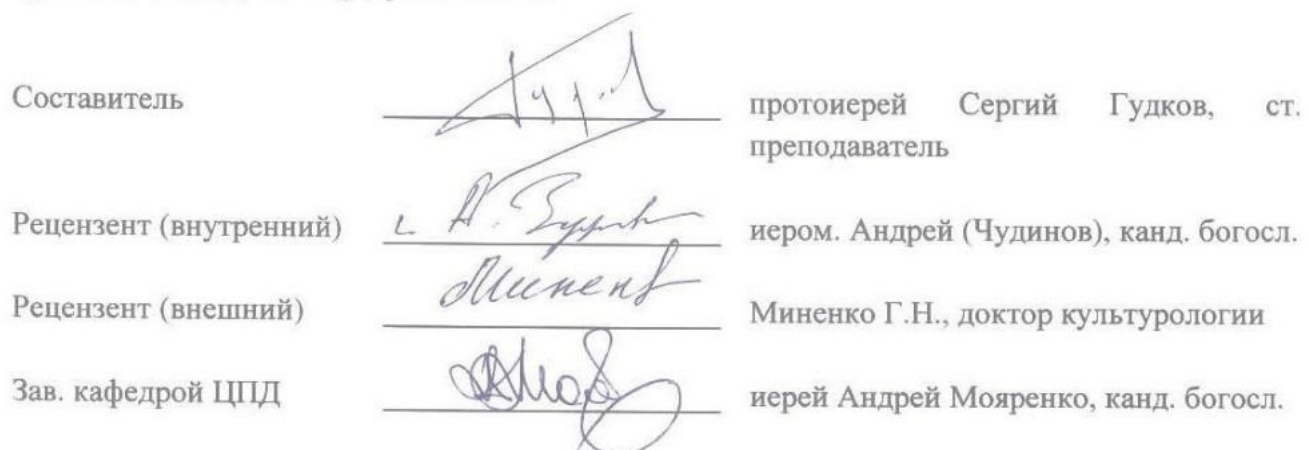 Составитель протоиерей Сергий Гудков, ст.
преподаватель
Рецензент (внутренний) иером. Андрей (Чудинов), канд. богосл.
Рецензент (внешний) Миненко Г.Н., доктор культурологии
Зав. кафедрой ЦПД иерей Андрей Мояренко, канд. богосл.